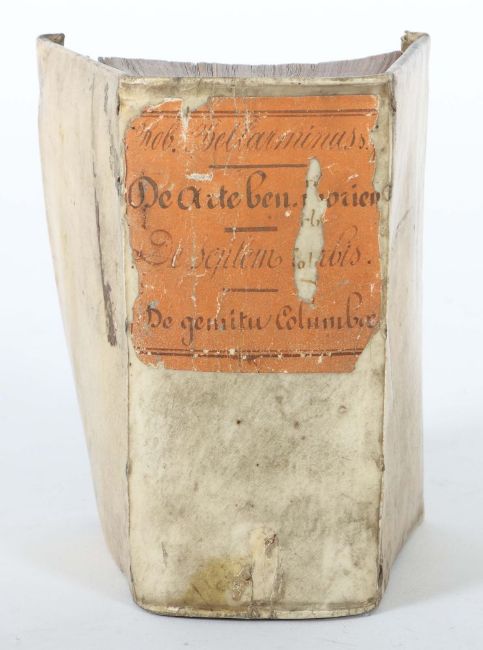 Rob. Bellarminus S.
De Arte ben. Morien
di.
De septem verbis.
De gemitu Columbæ